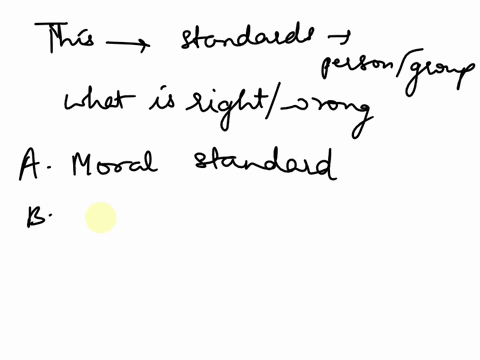 This → standards →
person/group
what is right/wrong
A. Moral standard
B.